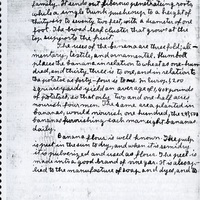 family. It sends out fibrous penetrating roots,
while a single trunk pushes up to a height of
thirty-six to seventy two feet, with a diameter of one
foot. The broad leaf cluster that grow at the
top supports the fruit.
The uses of the banana are threefold: ali-
mentary, textile, and ornamental. Humbolt
places the banana in relation to wheat one-hun-
dred, and thirty, three is to one, and in relation to
the potatoe as forty-four is to one. In turn, 1200
square yards yield an average of pounds
of potatoes, so that only two and one half acres
nourish four men. The same area planted in
bananas would nourish one hundred, the
bananas furnishing each man eight bananas
daily.
Banana flour is well known. The pulp
is put in the sun to dry, and when it is semidry
it is pulverized and used as flour. The peel is
made into a good brand of vinegar. It is also ap-
plied to the manufacture of soap, and dyes, and to